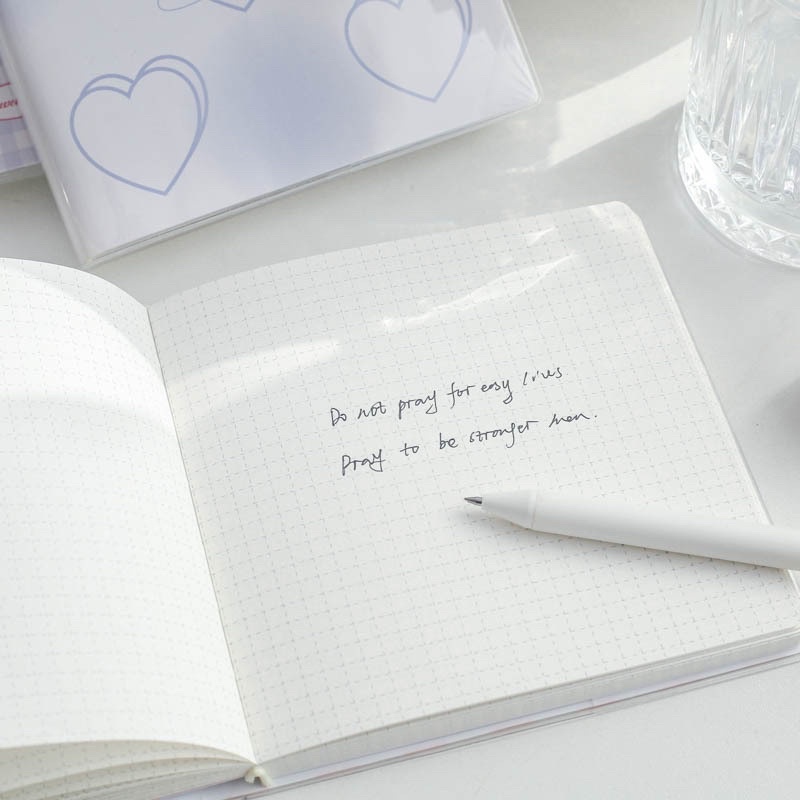 Do not pray for easy lives
Pray to be stronger men.